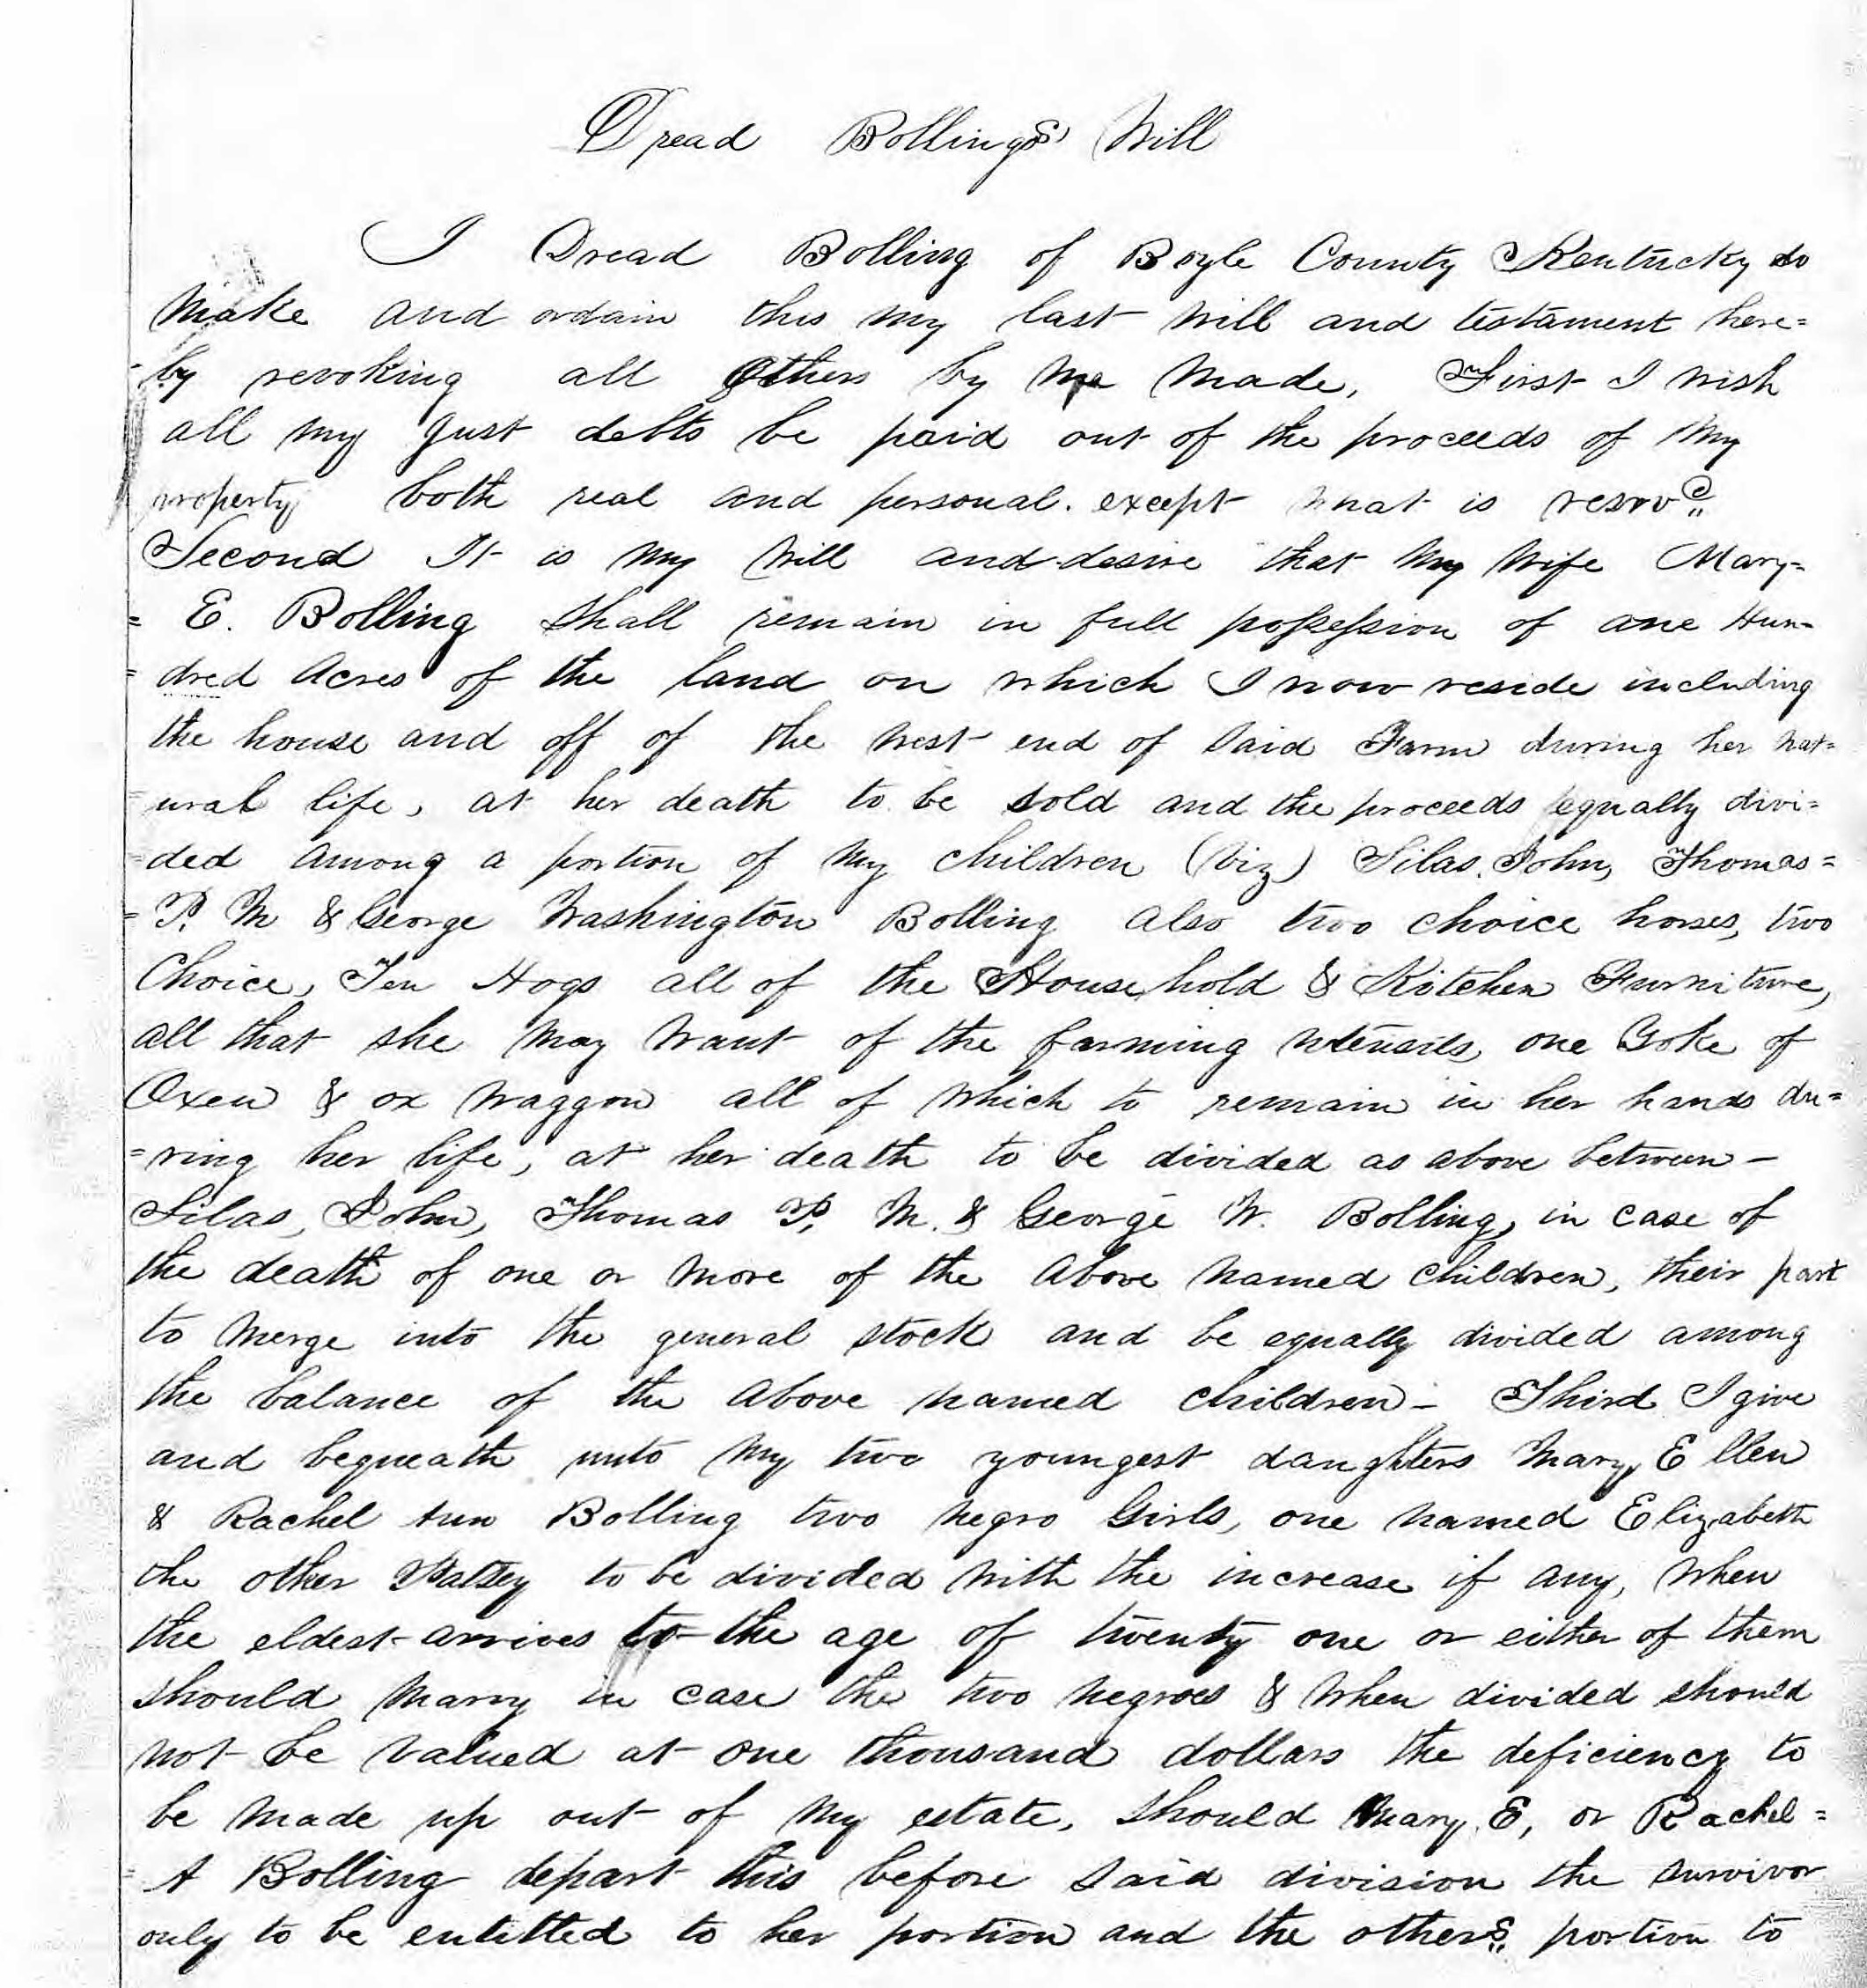 Dread Bollings' Will
I Dread Bolling of Boyle County Kentucky do
make and ordain this my last will and testament here=
by revoking all others by me made, First I wish
all my just debts be paid out of the proceeds of my
property both real and personal. except what is resrvd
Second It is my will and desire that my wife Mary=
= E. Bolling shall remain in full possession of one Hun=
= dred acres of the land on which I now reside including
the house and off of the west end of said Farm during her nat=
=ural life, at her death to be sold and the proceeds equally divi=
=ded among a portion of my children (viz) Silas, John, Thomas=
= P. M & George Washington Bolling also two choice horses, two
Choice, Ten Hogs all of the House hold & Kitchen Furniture,
all that she may want of the farming utensils, one Yoke of
Oxen & ox waggon all of which to remain in her hands du=
=ring her life, at her death to be divided as above between—
Silas, John, Thomas P, M. & George W. Bolling, in case of
the death of one or more of the above named children, their part
to merge into the general stock and be equally divided among
the balance of the above named children— Third I give
and bequeath unto my two youngest daughters Mary Ellen
& Rachel Ann Bolling two negro Girls, one named Elizabeth
the other Patsey to be divided with the increase if any, when
the eldest arrives to the age of twenty one or either of them
should marry in case the two negroes & when divided should
not be valued at one thousand dollars the deficiency to
be made up out of my estate, should Mary E, or Rachel=
= A Bolling depart this before said division the survivor
only to be entitled to her portion and the others portion to